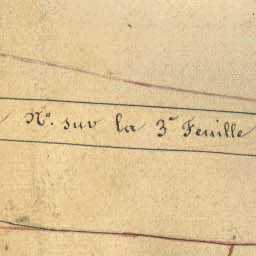 N° sur la 3e Feuille